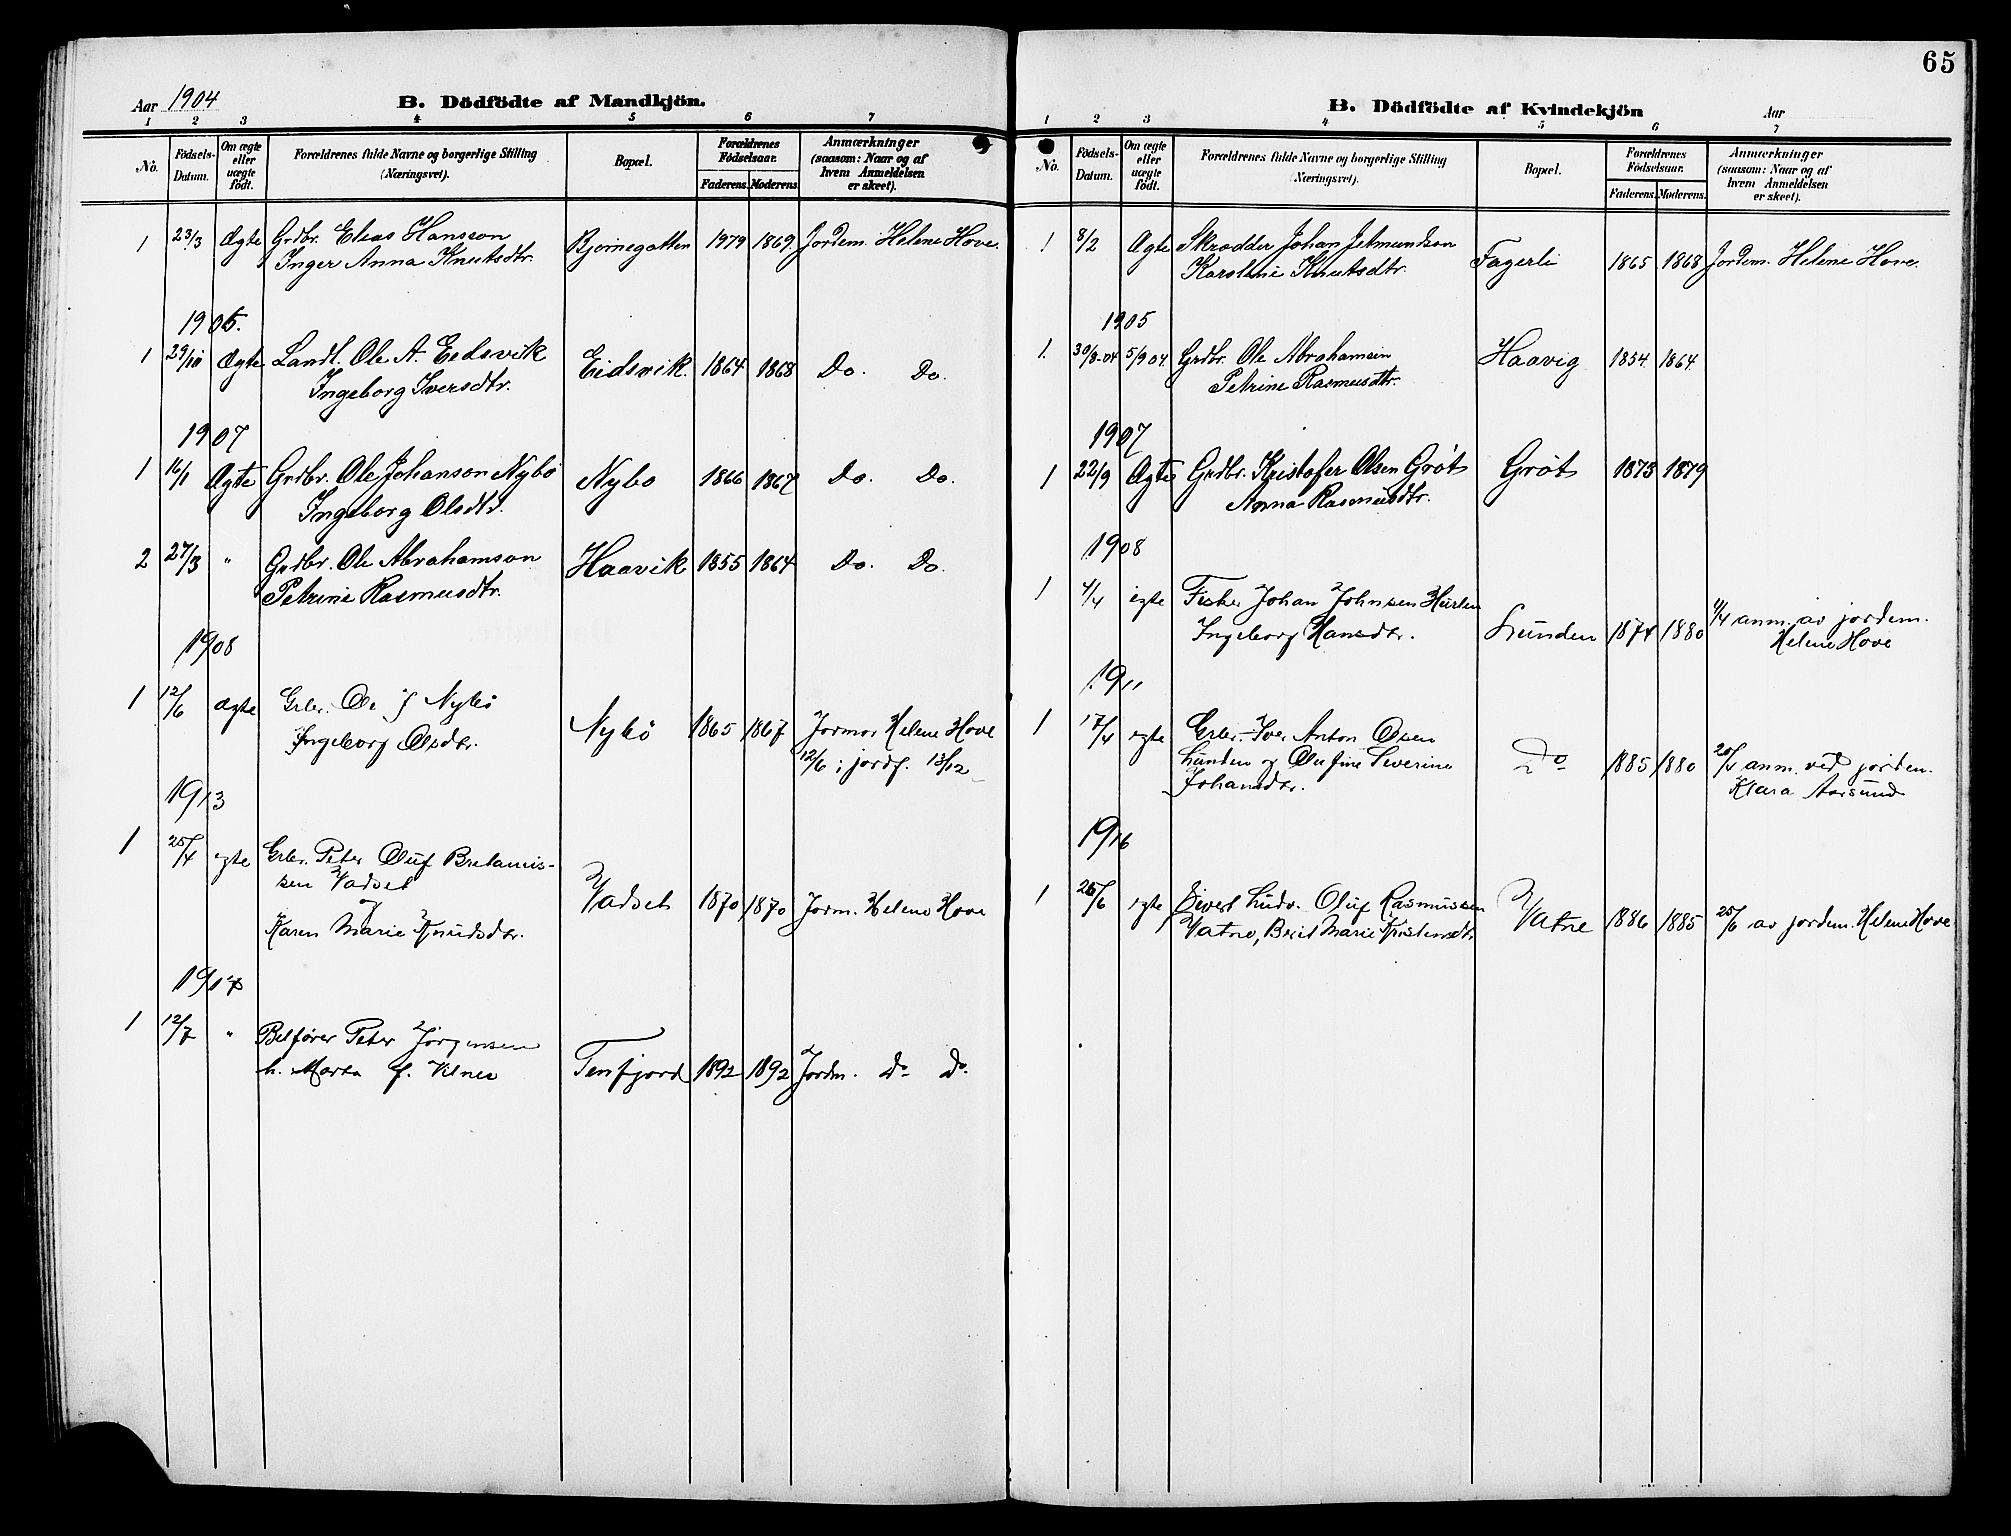 65
Aar 1904
B. Dödfödte af Mandkjön.
1 2 3 4 5 6 7
No.
Födsels-
Datum.
Om ægte
eller
uægte
födt.
Forældrenes fulde Navne og borgerlige Stilling
(Næringsvei).
Bopæl.
Forældrenes
Födselsaar.
Faderens. Moderens.
Anmærkninger
(saasom: Naar og af
hvem Anmeldelsen
er skeet).
1 23/3 Ægte Grdbr. Elias Hansson Bjørnegatten 1979 1869 Jordem. Helene Hove.
Inger Anna Knutsdtr.
1905.
1 29/10 Ægte Landl. Ole A. Eidsvik Eidsvik 1864 1868 Do. Do.
Ingeborg Iversdtr.
1907
1 16/1 Ægte Grdbr. Ole Johanson Nybø Nybø 1866 1867 Do. Do.
Ingeborg Olsdtr.
2 27/3 " Grdbr. Ole Abrahamson Haavik 1855 1864 Do. Do.
Petrine Rasmusdtr.
1908
1 12/6 ægte Grbr. Ole J Nybö Nybö 1865 1867 Jormor Helene Hove
Ingeborg Olsdtr. 12/6 ; jordf. 13/12
1913
1 25/4 egte Grbr. Peter Oluf
sen Vadset Vadset 1870 1870 Jorm. Helene Hove
og
Karen Marie Knudsdtr.
1917
1 12/7 " Peter Jörgensen
h. Marta f. Vilnes Tenfjord 1892 1892 Jordm. Do Do
B. Dödfödte af Kvindekjön
Aar
1 2 3 4 5 6 7
No.
Födsels-
Datum.
Om ægte
eller
uægte
födt.
Forældrenes fulde Navne og borgerlige Stilling
(Næringsvei).
Bopæl.
Forældrenes
Födselsaar.
Faderens. Moderens.
Anmærkninger
(saasom: Naar og af
hvem Anmeldelsen
er skeet).
1 8/2 Ægte Skrædder Johan Jetmundson
Karoline Knutsdtr. Fagerli 1865 1868 Jordem. Helene Hove.
1905
1. 30/8-04 5/9 04 Grdbr. Ole Abrahamsen Haavig 1854 1864
Petrine Rasmusdtr.
1907
1 22/9 Ægte Grdbr. Kristofer Olsen Grøt Grøt 1873 1879
Anna Rasmusdtr.
1908
1 4/4 egte Fisker Johan Johnsen
Ingeborg Hansdtr. Lunden 1874 1880 4/4 anm. av jordem.
Helene Hove
1911
1 17/4 egte Grbr. Iver Anton Olsen
Lunden og Olufine Severine Do 1885 1880 20/4 anm. ved jordem.
Johansdtr. Klara Aarsund
1916
1 26/6 egte Sivert Ludv. Oluf Rasmussen
Vatne, Brit Marie Kristensdtr Vatne 1886 1885 25/6 av jordem. Helene Hove